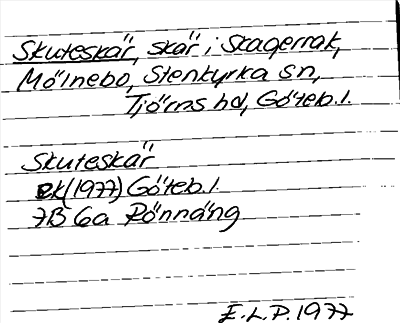 Skuteskär, skär i Skagerrak,
Mölnebo, Stenkyrka sn,
Tjörns hd, Göteb. l.
Skuteskär
ek (1977) Göteb. l.
7B 6a Rönnäng
E.L.P. 1977